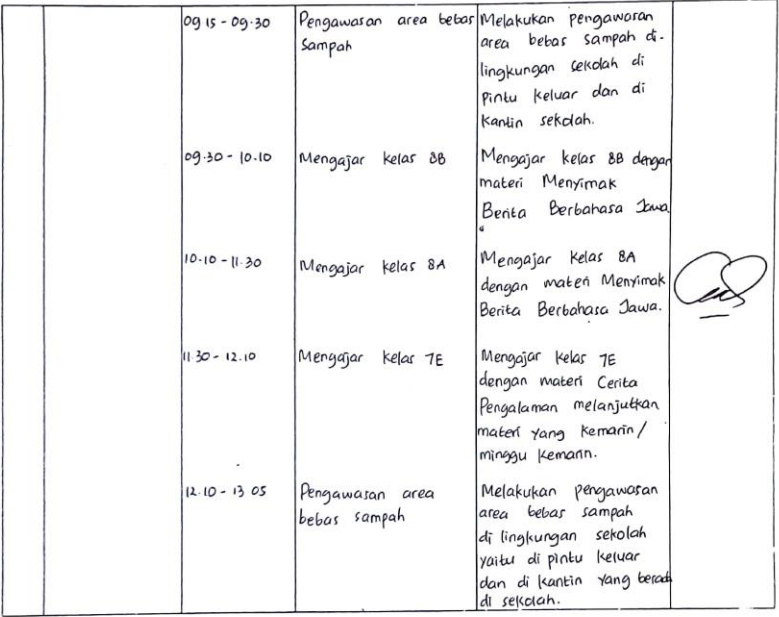 09 15 - 09.30
Pengawasan area bebas
Sampah
Melakukan pengawasan
area bebas sampah di-
lingkungan sekolah di
pintu keluar dan di
kantin sekolah.
09.30 - 10.10
Mengajar kelas 8B
Mengajar kelas 8B dengan
materi Menyimak
Berita Berbahasa Jawa
10.10 - 11.30
Mengajar kelas 8A
Mengajar kelas 8A
dengan materi Menyimak
Berita Berbahasa Jawa.
11.30 - 12.10
Mengajar kelas 7E
Mengajar kelas 7E
dengan materi Cerita
Pengalaman melanjutkan
materi yang kemarin/
minggu kemarin.
12.10 - 13 05
Pengawasan area
bebas sampah
Melakukan pengawasan
area bebas sampah
di lingkungan sekolah
yaitu di pintu keluar
dan di kantin yang berad
di sekolah.